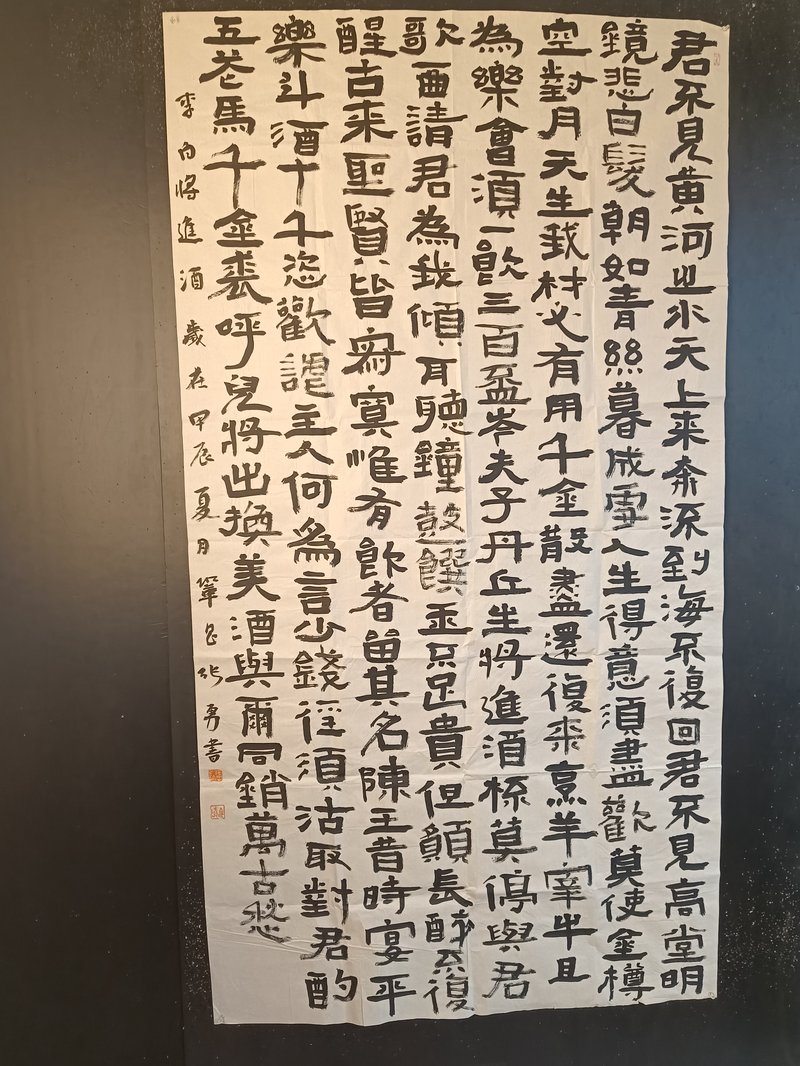 君不見黃河之水天上来奔流到海不復回君不見高堂明
鏡悲白髮朝如青絲暮成雪人生得意須盡歡莫使金樽
空對月天生我材必有用千金散盡還復来烹羊宰牛且
為樂會須一飲三百盃岑夫子丹丘生將進酒杯莫停與君
歌一曲請君為我傾耳聽鐘鼓饌玉不足貴但願長醉不復
醒古来聖賢皆寂寞惟有飲者留其名陳王昔時宴平
樂斗酒十千恣歡謔主人何為言少錢徑須沽取對君酌
五花馬千金裘呼兒將出換美酒與爾同銷萬古愁
李白將進酒 歲在甲辰夏月鞏昌張勇書